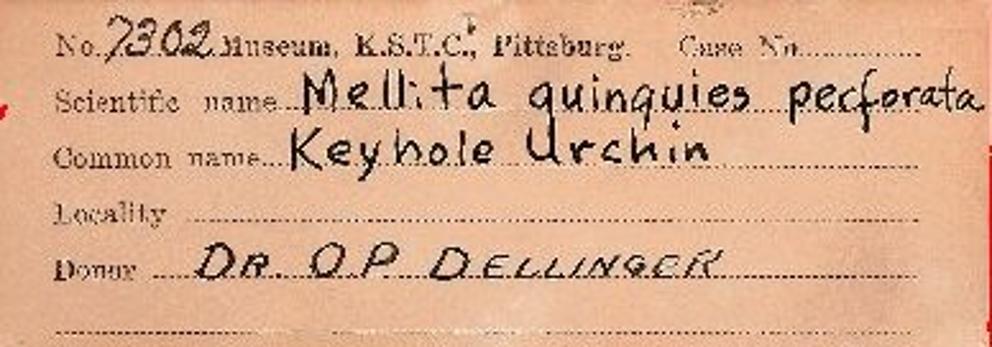 No. 7302 Museum, K.S.T.C., Pittsburg. Case No.
Scientific name Mellita quinquies perforata
Common name Keyhole Urchin
Locality
Donor DR. O P DELLINGER